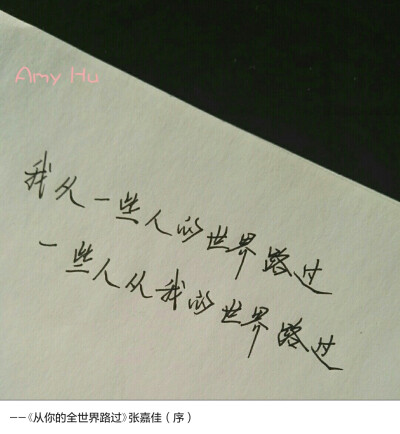 Amy Hu
我从一些人的世界路过
一些人从我的世界路过
——《从你的全世界路过》张嘉佳（序）